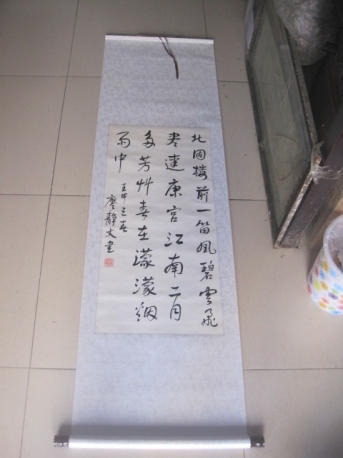 北固樓前一笛風碧雲飛
尽建康宫江南二月
多芳艸春在濛濛細
雨中
壬申之春
廖静文書